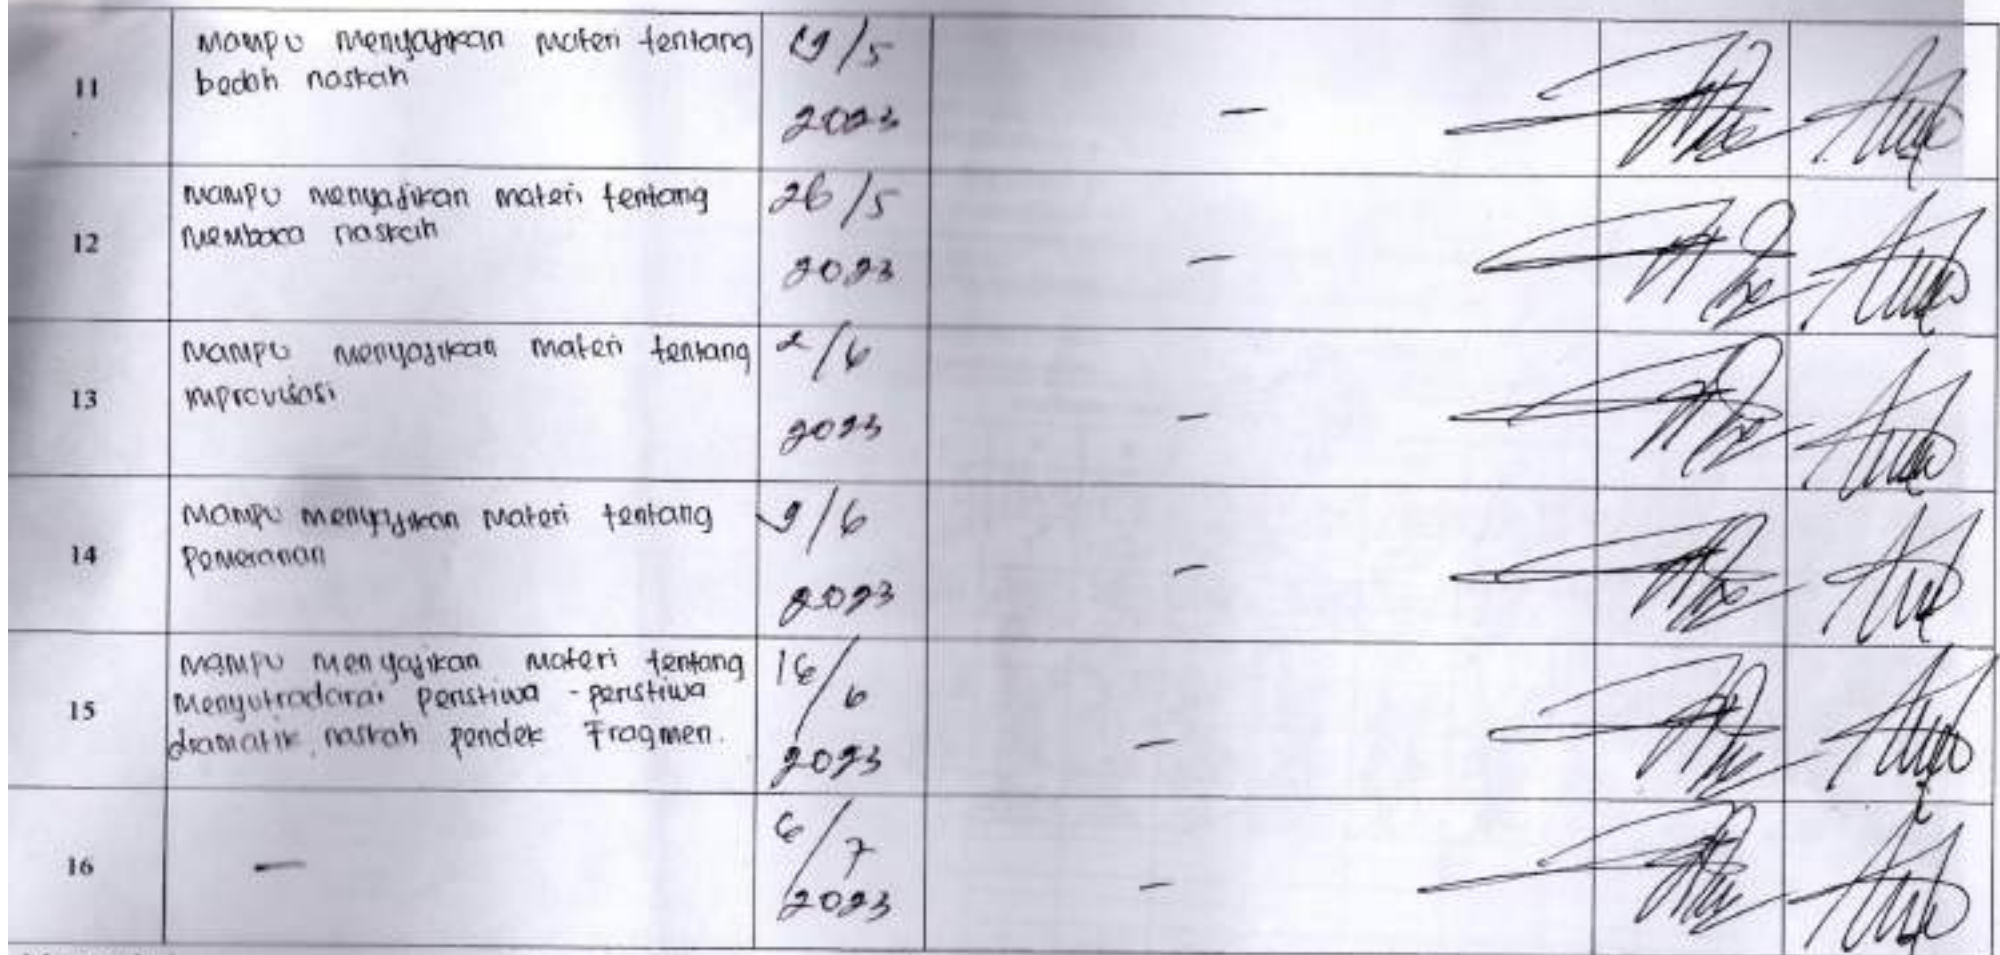 11
Mampu menyajikan materi tentang
bedah naskah
19/5
2023
-
12
Mampu menyajikan materi tentang
Membaca naskah
26/5
2023
-
13
Mampu menyajikan materi tentang
improvisasi
2/6
2023
-
14
Mampu menyajikan materi tentang
Pemeranan
9/6
2023
-
15
Mampu menyajikan materi tentang
Menyutradarai peristiwa - peristiwa
dramatik, naskah pendek Fragmen.
16/6
2023
-
16
-
6/7
2023
-